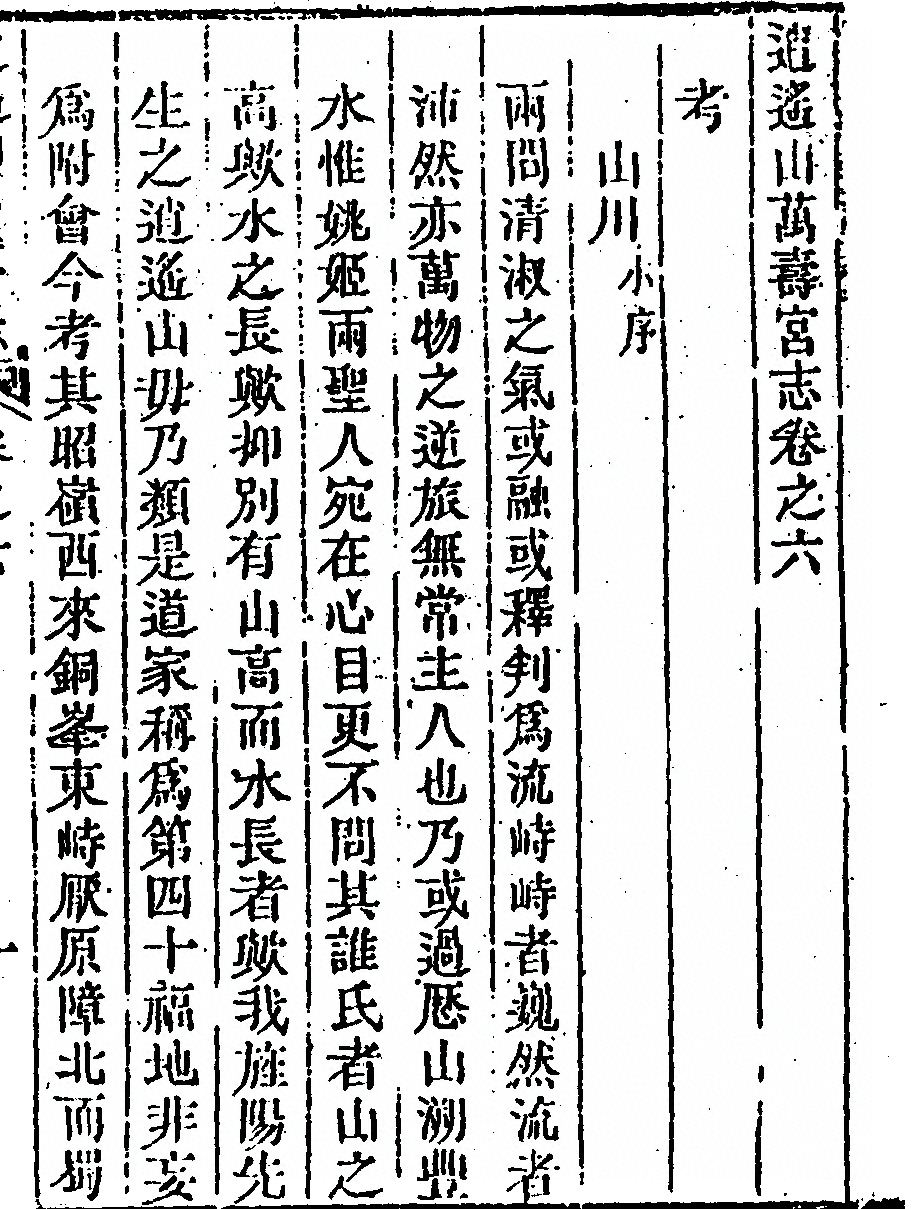 逍遙山萬壽宮志卷之六
考
山川小序
兩間清淑之氣或融或釋判爲流峙峙者巍然流者
沛然亦萬物之逆旅無常主人也乃或過歷山溯豐
水惟姚姬兩聖人宛在心目更不問其誰氏者山之
高歟水之長歟抑別有山高而水長者歟我旌陽先
生之逍遙山毋乃類是道家稱爲第四十福地非妄
爲附會今考其昭嶺西來銅峯東峙厭原障北而